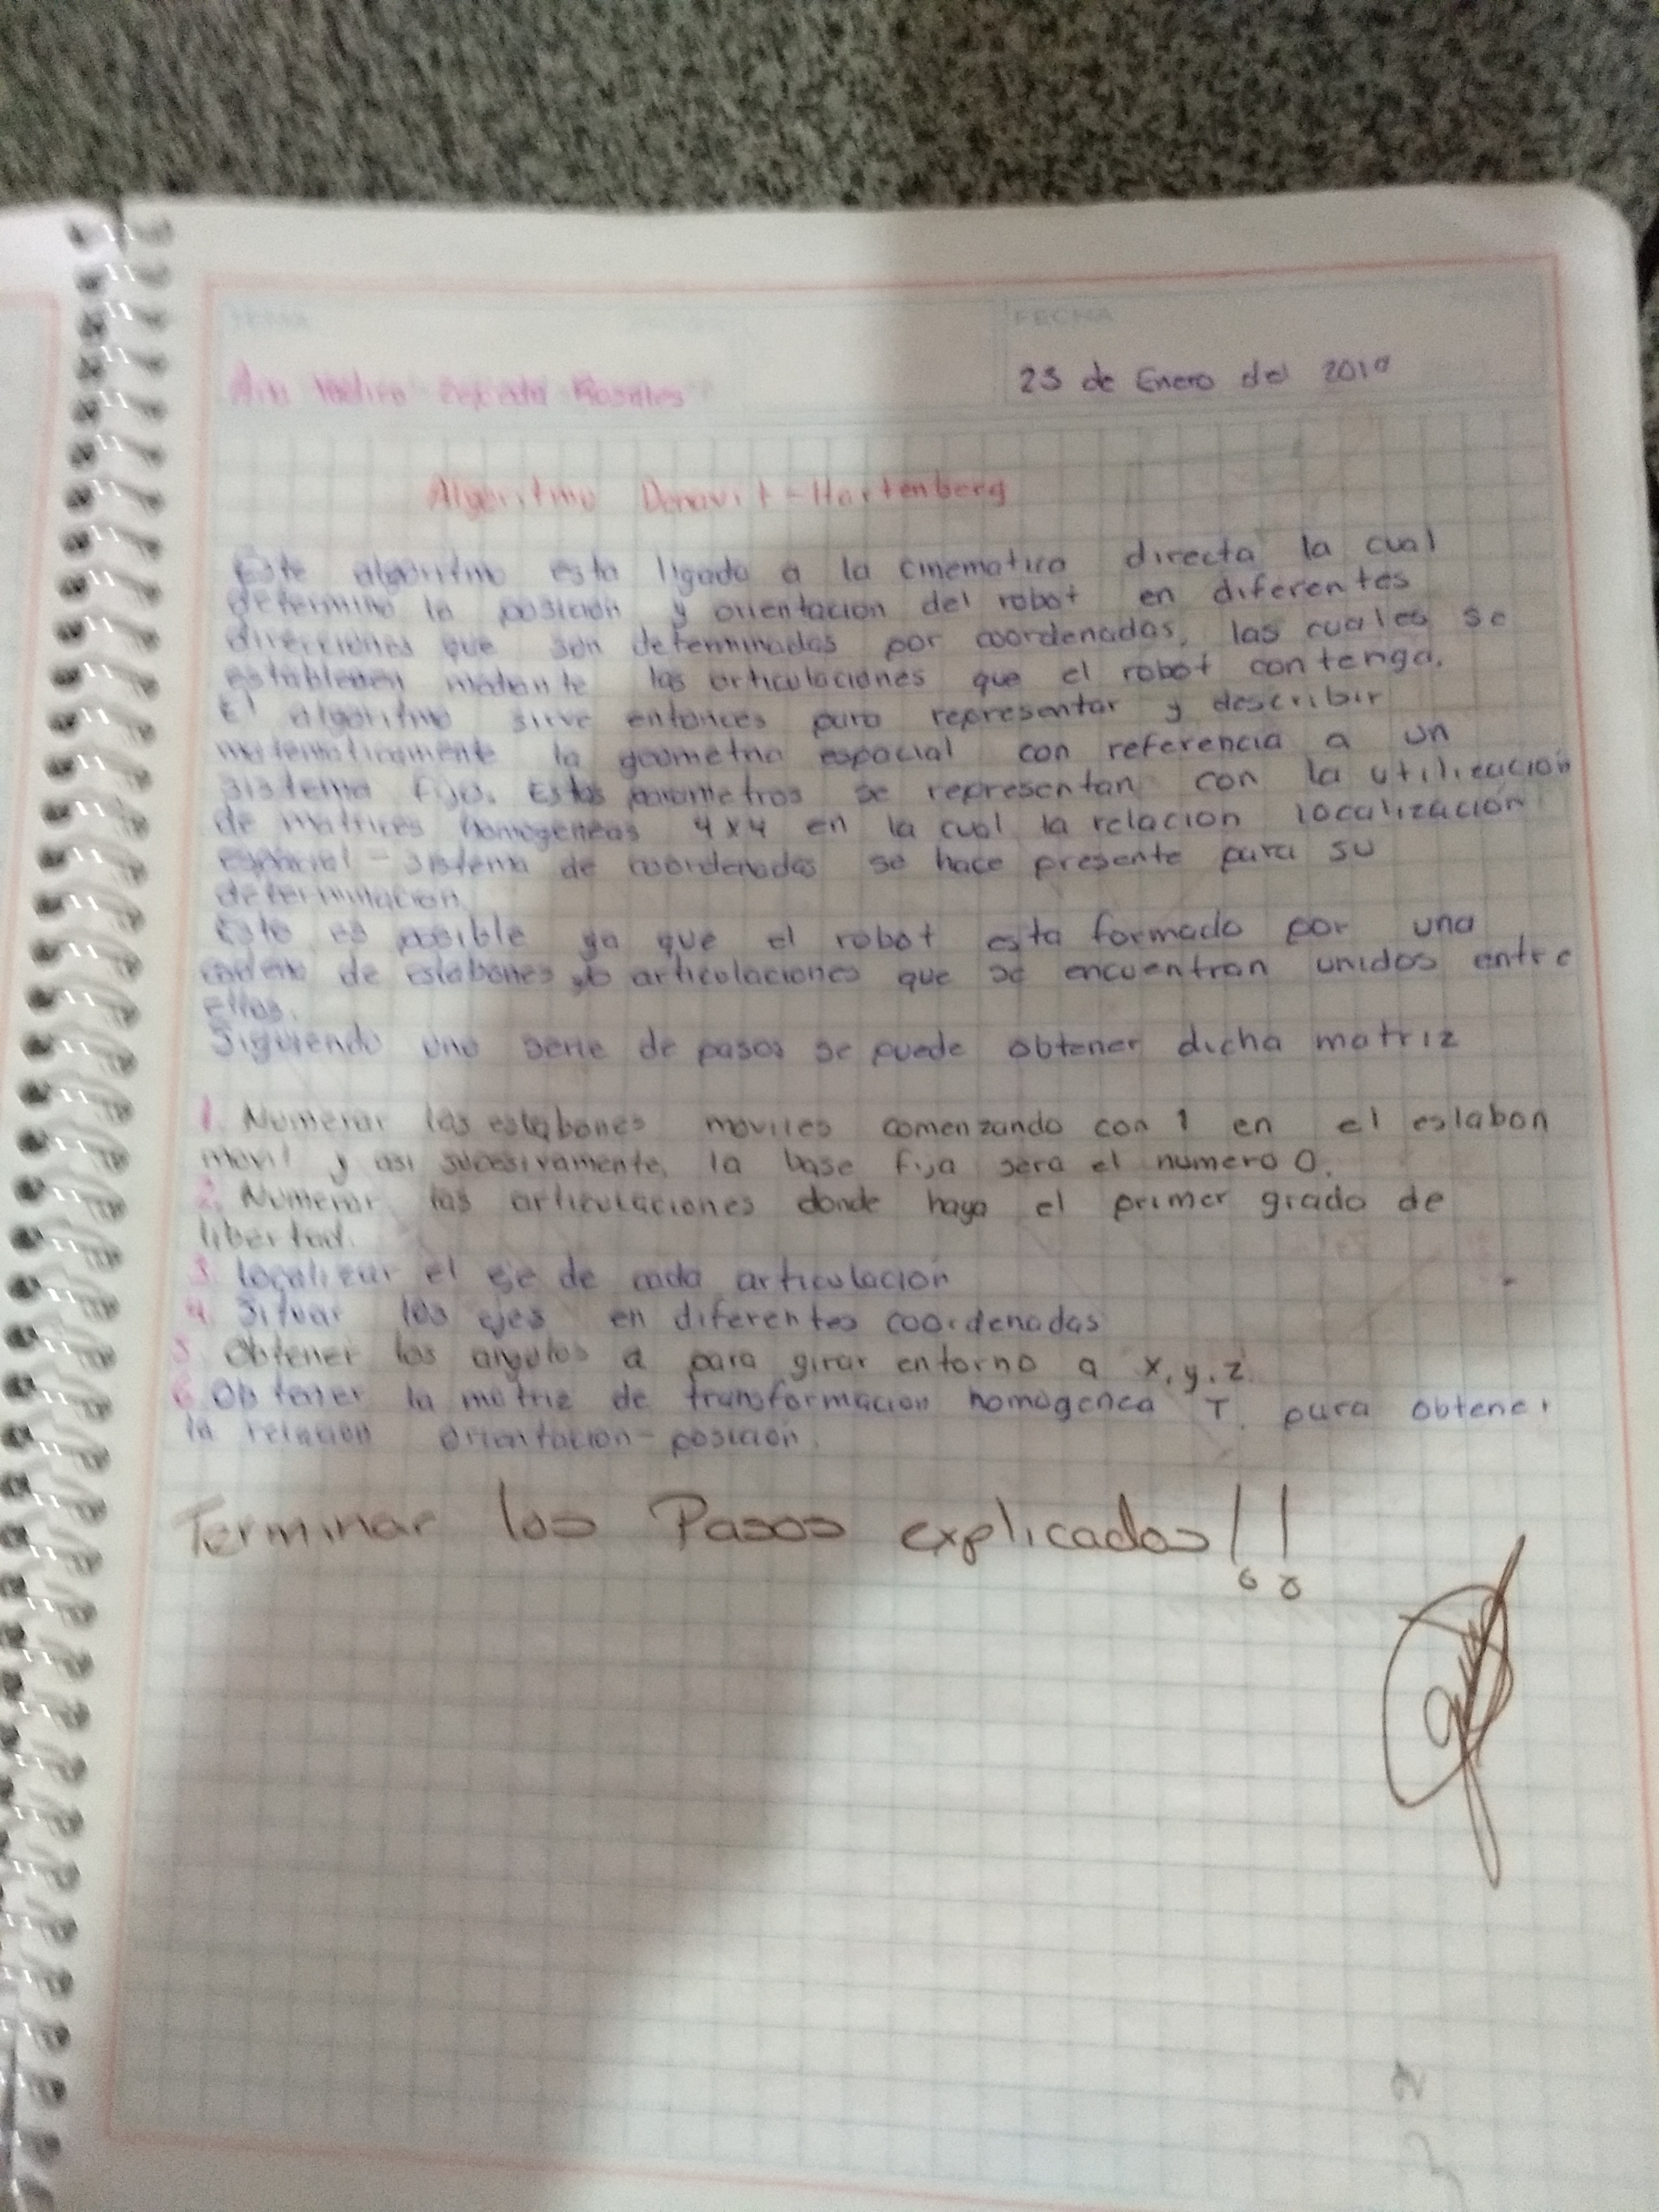 TEMA
FECHA
Rosales
23 de Enero del 201
Algoritmo Denavit-Hartenberg
Este algoritmo esta ligado a la cinematica directa la cual
determina la posición y orientacion del robot en diferentes
direcciones que son determinadas por coordenadas, las cuales se
establecen mediante las articulaciones que el robot contenga.
El algoritmo sirve entonces para representar y describir
matematicamente la geometria espacial con referencia a un
sistema fijo. Estos parametros se representan con la utilización
de matrices homogeneas 4x4 en la cual la relacion localización
espacial - sistema de coordenadas se hace presente para su
determinacion.
Esto es posible ya que el robot esta formado por una
cadena de eslabones articulaciones que se encuentran unidos entre
ellos.
Siguiendo una serie de pasos se puede obtener dicha matriz
1. Numerar los eslabones moviles comenzando con 1 en el eslabon
movil y asi sucesivamente, la base fija sera el numero 0.
2. Numerar las articulaciones donde haya el primer grado de
libertad.
3. Localizar el eje de cada articulación
4. Situar los ejes en diferentes coordenadas
5. Obtener los angulos a para girar entorno a x,y,z
6. Obtener la matriz de transformacion homogenea T. para obtener
la relacion orientacion-posición.
Terminar los Pasos explicados!!